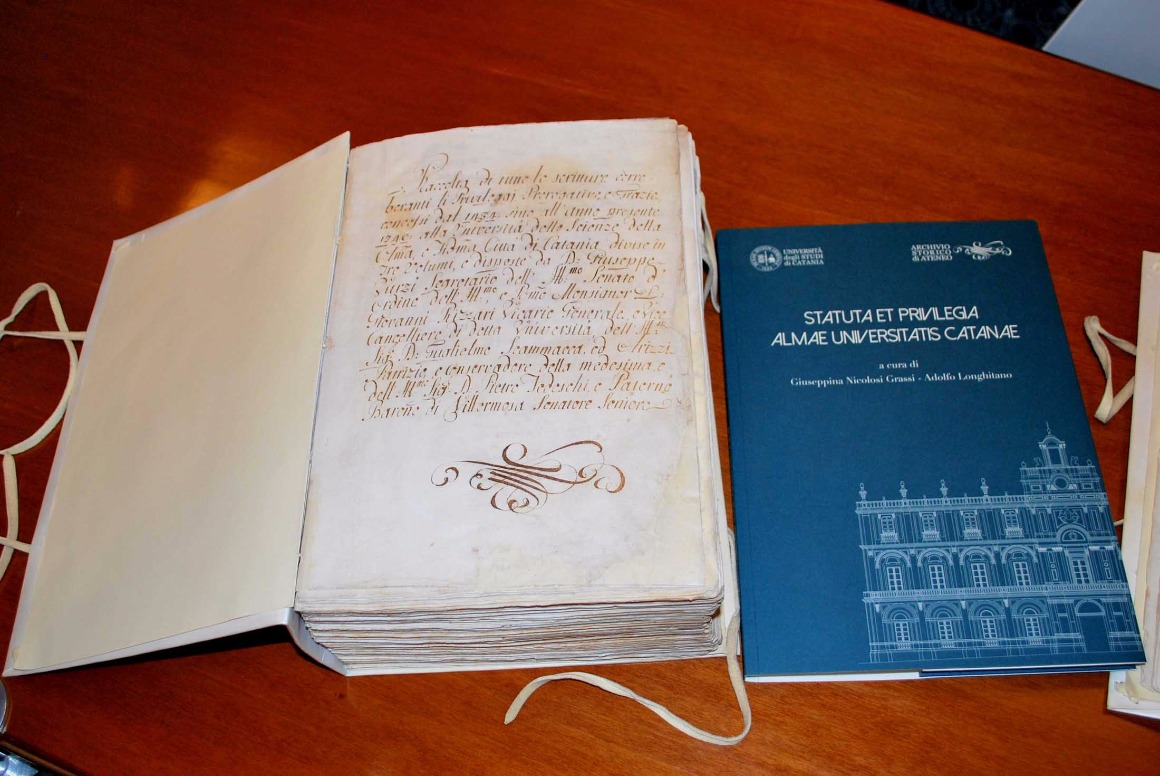 Raccolta di tutte le scritture corro-
boranti li Privileggi Prerogative, e Grazie
concessi dal 1434 sino all'anno presente
alla Università delle Scienze della
Clma, e Fidma Città di Catania divise in
tre Volumi, e disposte da Dr. Giuseppe
Segretario dell' Ill.mo Senato d'
Ordine dell' Ill.mo, e Rmo Monsignor D.
Giovanni Rizzari Vicario Generale, e Vice
Cancelliere di detta Università dell' Ill.re
Sig. Dr. Guglielmo Scammacca, ed Arizzi
Patrizio, e conservadore della medesima, e
dell' Ill.mo Sig. D. Pietro Tedeschi, e Paternò
Barone di Villermosa Senatore Seniore
UNIVERSITÀ
degli STUDI
di CATANIA
ARCHIVIO
STORICO
di ATENEO
STATUTA ET PRIVILEGIA
ALMAE UNIVERSITATIS CATANAE
a cura di
Giuseppina Nicolosi Grassi - Adolfo Longhitano